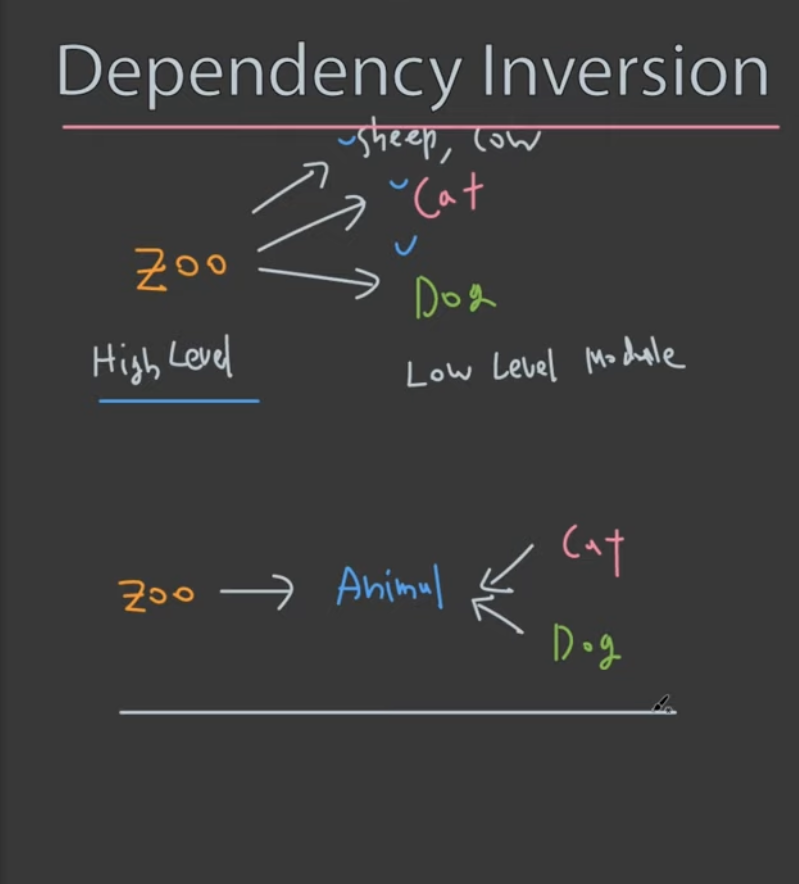 Dependency Inversion
sheep, cow
Cat
Zoo
Dog
High Level
Low Level Module
Cat
Zoo Animal
Dog